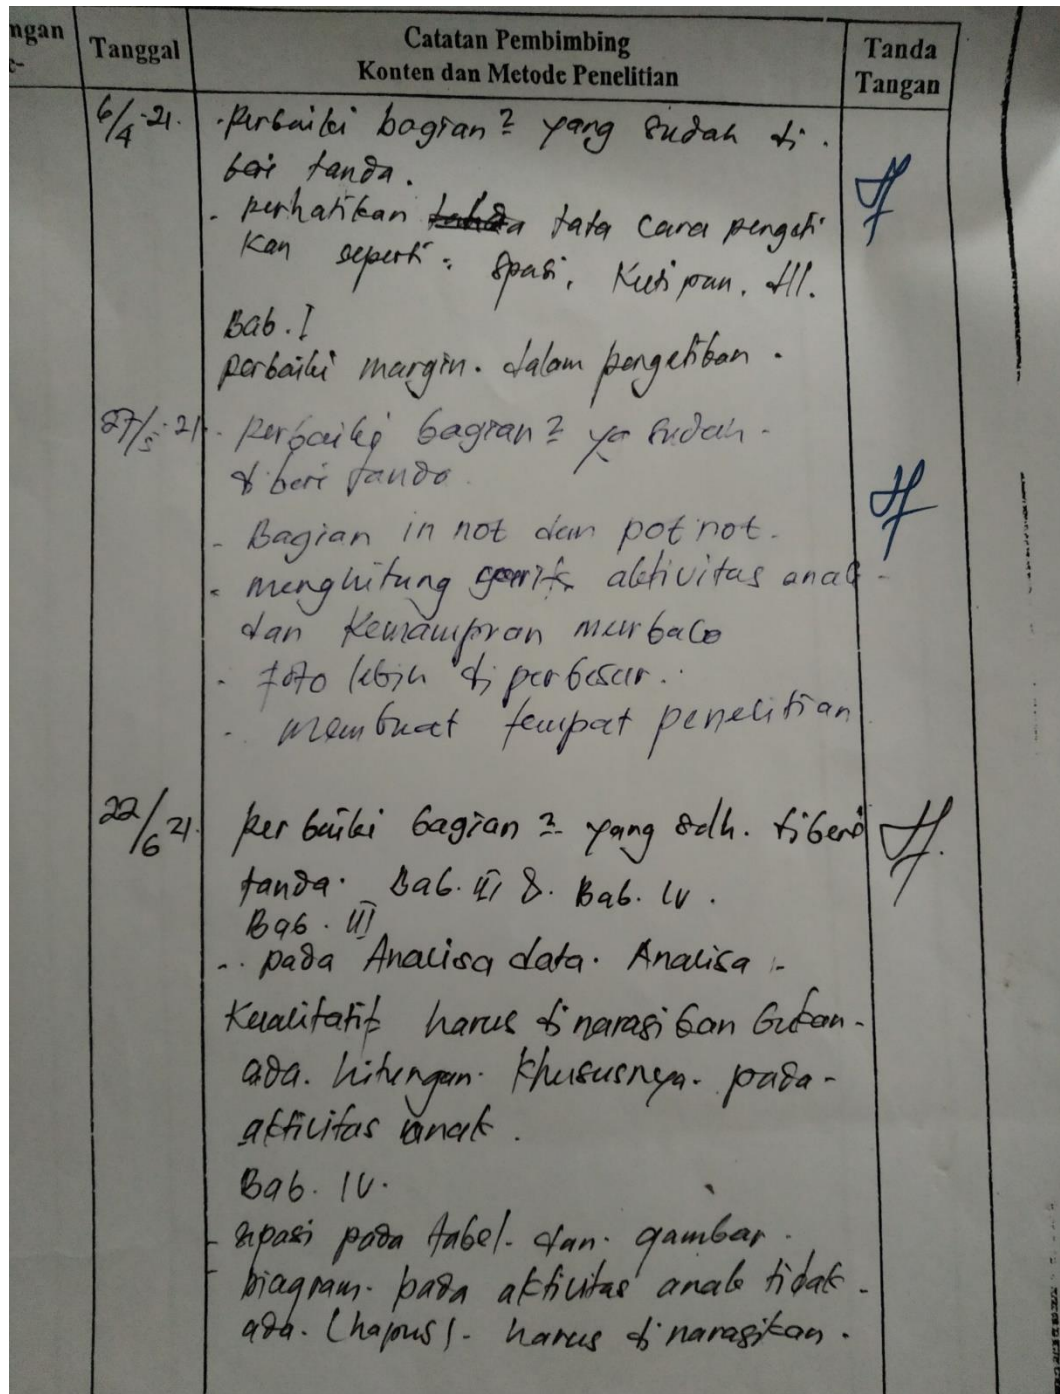 ngan
e-
Tanggal
Catatan Pembimbing
Konten dan Metode Penelitian
Tanda
Tangan
6/4-21.
- Perbaiki bagian2 yang sudah di.
beri tanda.
- perhatikan tata cara pengeti
kan seperti : spasi, Kutipan, dll.
Bab. I
perbaiki margin. dalam pengetikan.
27/5-21
- Perbaiki bagian2 yg sudah -
diberi tanda.
- Bagian in not dan potnot.
- menghitung aktivitas anak -
dan Kemampuan membaca
- foto lebih diperbesar.
- membuat tempat penelitian
22/6 21.
perbaiki bagian2 yang sdh. diberi
tanda. Bab. III & Bab. IV.
Bab. III
- pada Analisa data. Analisa -
Kualitatif harus dinarasikan bukan -
ada. hitungan. Khususnya. pada -
aktivitas anak.
Bab. IV.
- spasi pada tabel. dan. gambar.
- Diagram. pada aktivitas anak tidak -
ada. (hapus). harus dinarasikan.